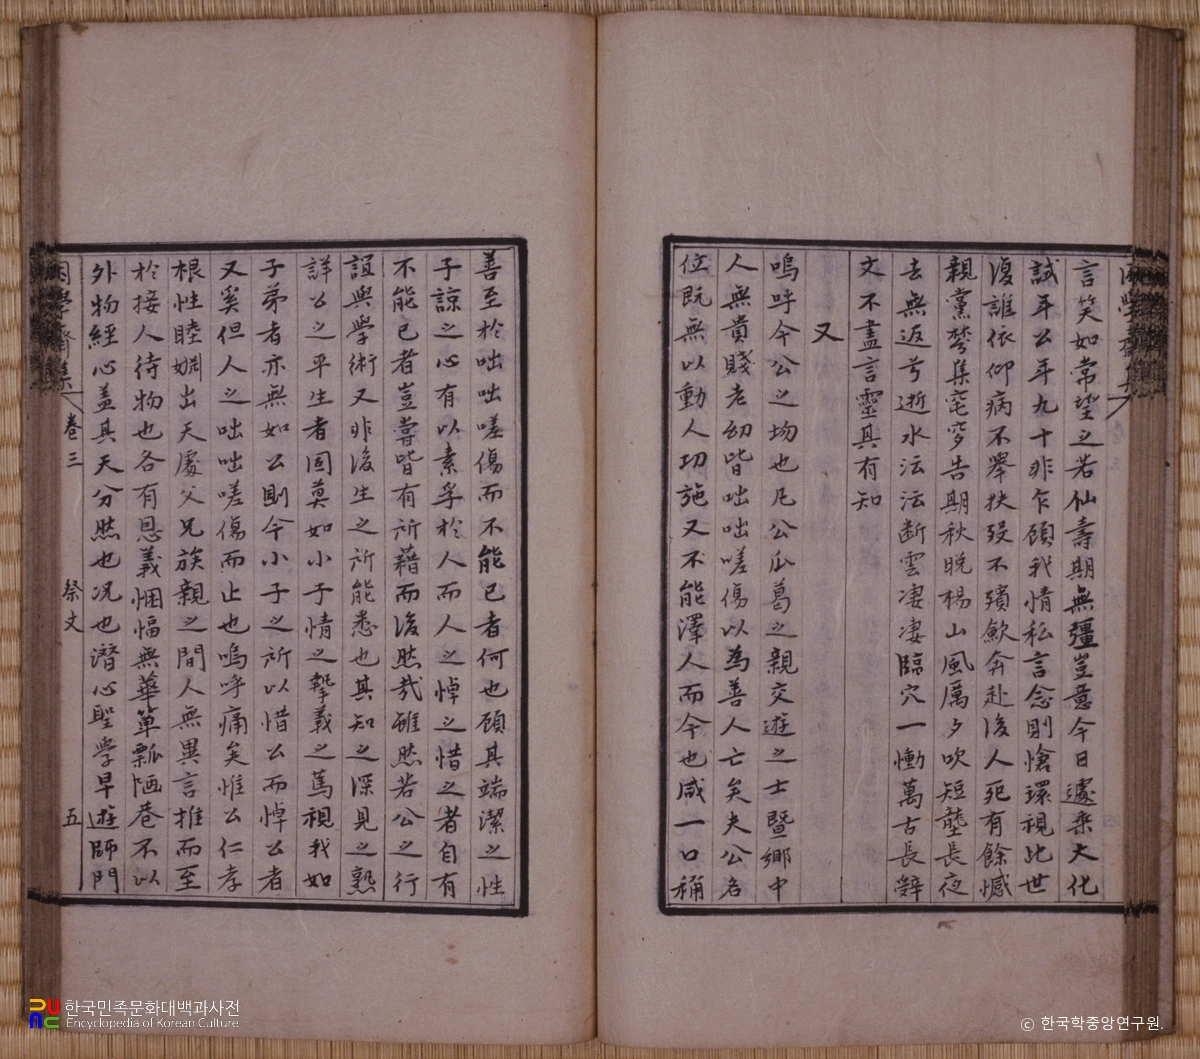 言笑如常望之若仙壽期無疆豈意今日遽乘大化
試年公年九十非乍顧我情私言念則愴環視此世
復誰依仰病不舉扶歿不殯歛奔赴後人死有餘憾
親黨棼集窀穸告期秋晩楊山風厲夕吹短壟長夜
去無返兮逝水沄沄断雲凄凄臨穴一慟萬古長辭
文不盡言靈其有知
又
嗚呼今公之歿也凡公瓜葛之親交遊之士曁鄉中
人無貴賤老幼皆咄咄嗟傷以為善人亡矣夫公名
位旣無以動人功施又不能澤人而今也咸一口稱
善至於咄咄嗟傷而不能已者何也顧其端潔之性
子諒之心有以素孚於人而人之悼之惜之者自有
不能已者豈嘗皆有所藉而後然哉雖然若公之行
誼與學術又非後生之所能悉也其知之深見之熟
詳公之平生者固莫如小子情之摯義之篤視我如
子弟者亦無如公則今小子之所以惜公而悼公者
又奚但人之咄咄嗟傷而止也嗚呼痛矣惟公仁孝
根性睦婣出天處父兄族親之間人無異言推而至
於接人待物也各有恩義悃愊無華簞瓢陋巷不以
外物經心盖其天分然也况也潛心聖学早遊師門
困學齋集 卷三 祭文 五
한국민족문화대백과사전
Encyclopedia of Korean Culture
© 한국학중앙연구원.